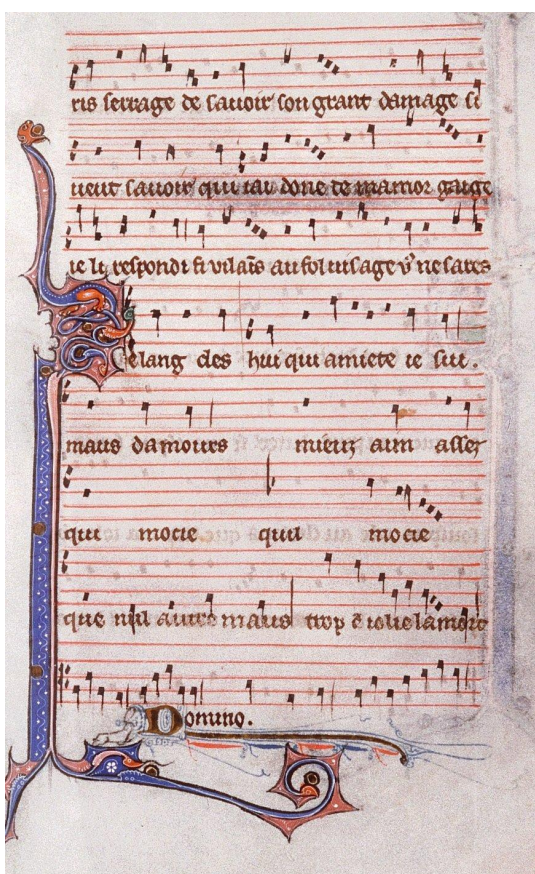 ris serrage de sauoir son grant damage si
ueut sauoir qui iai done te mamor gaige
ie li respondi si vilains au fol uisage ne sares
elang des hui qui amiete ie sui.
maus damours mieuz aim assez
qui mocie quil mocie
que nul autre maus trop est iolie lamors
Domino.